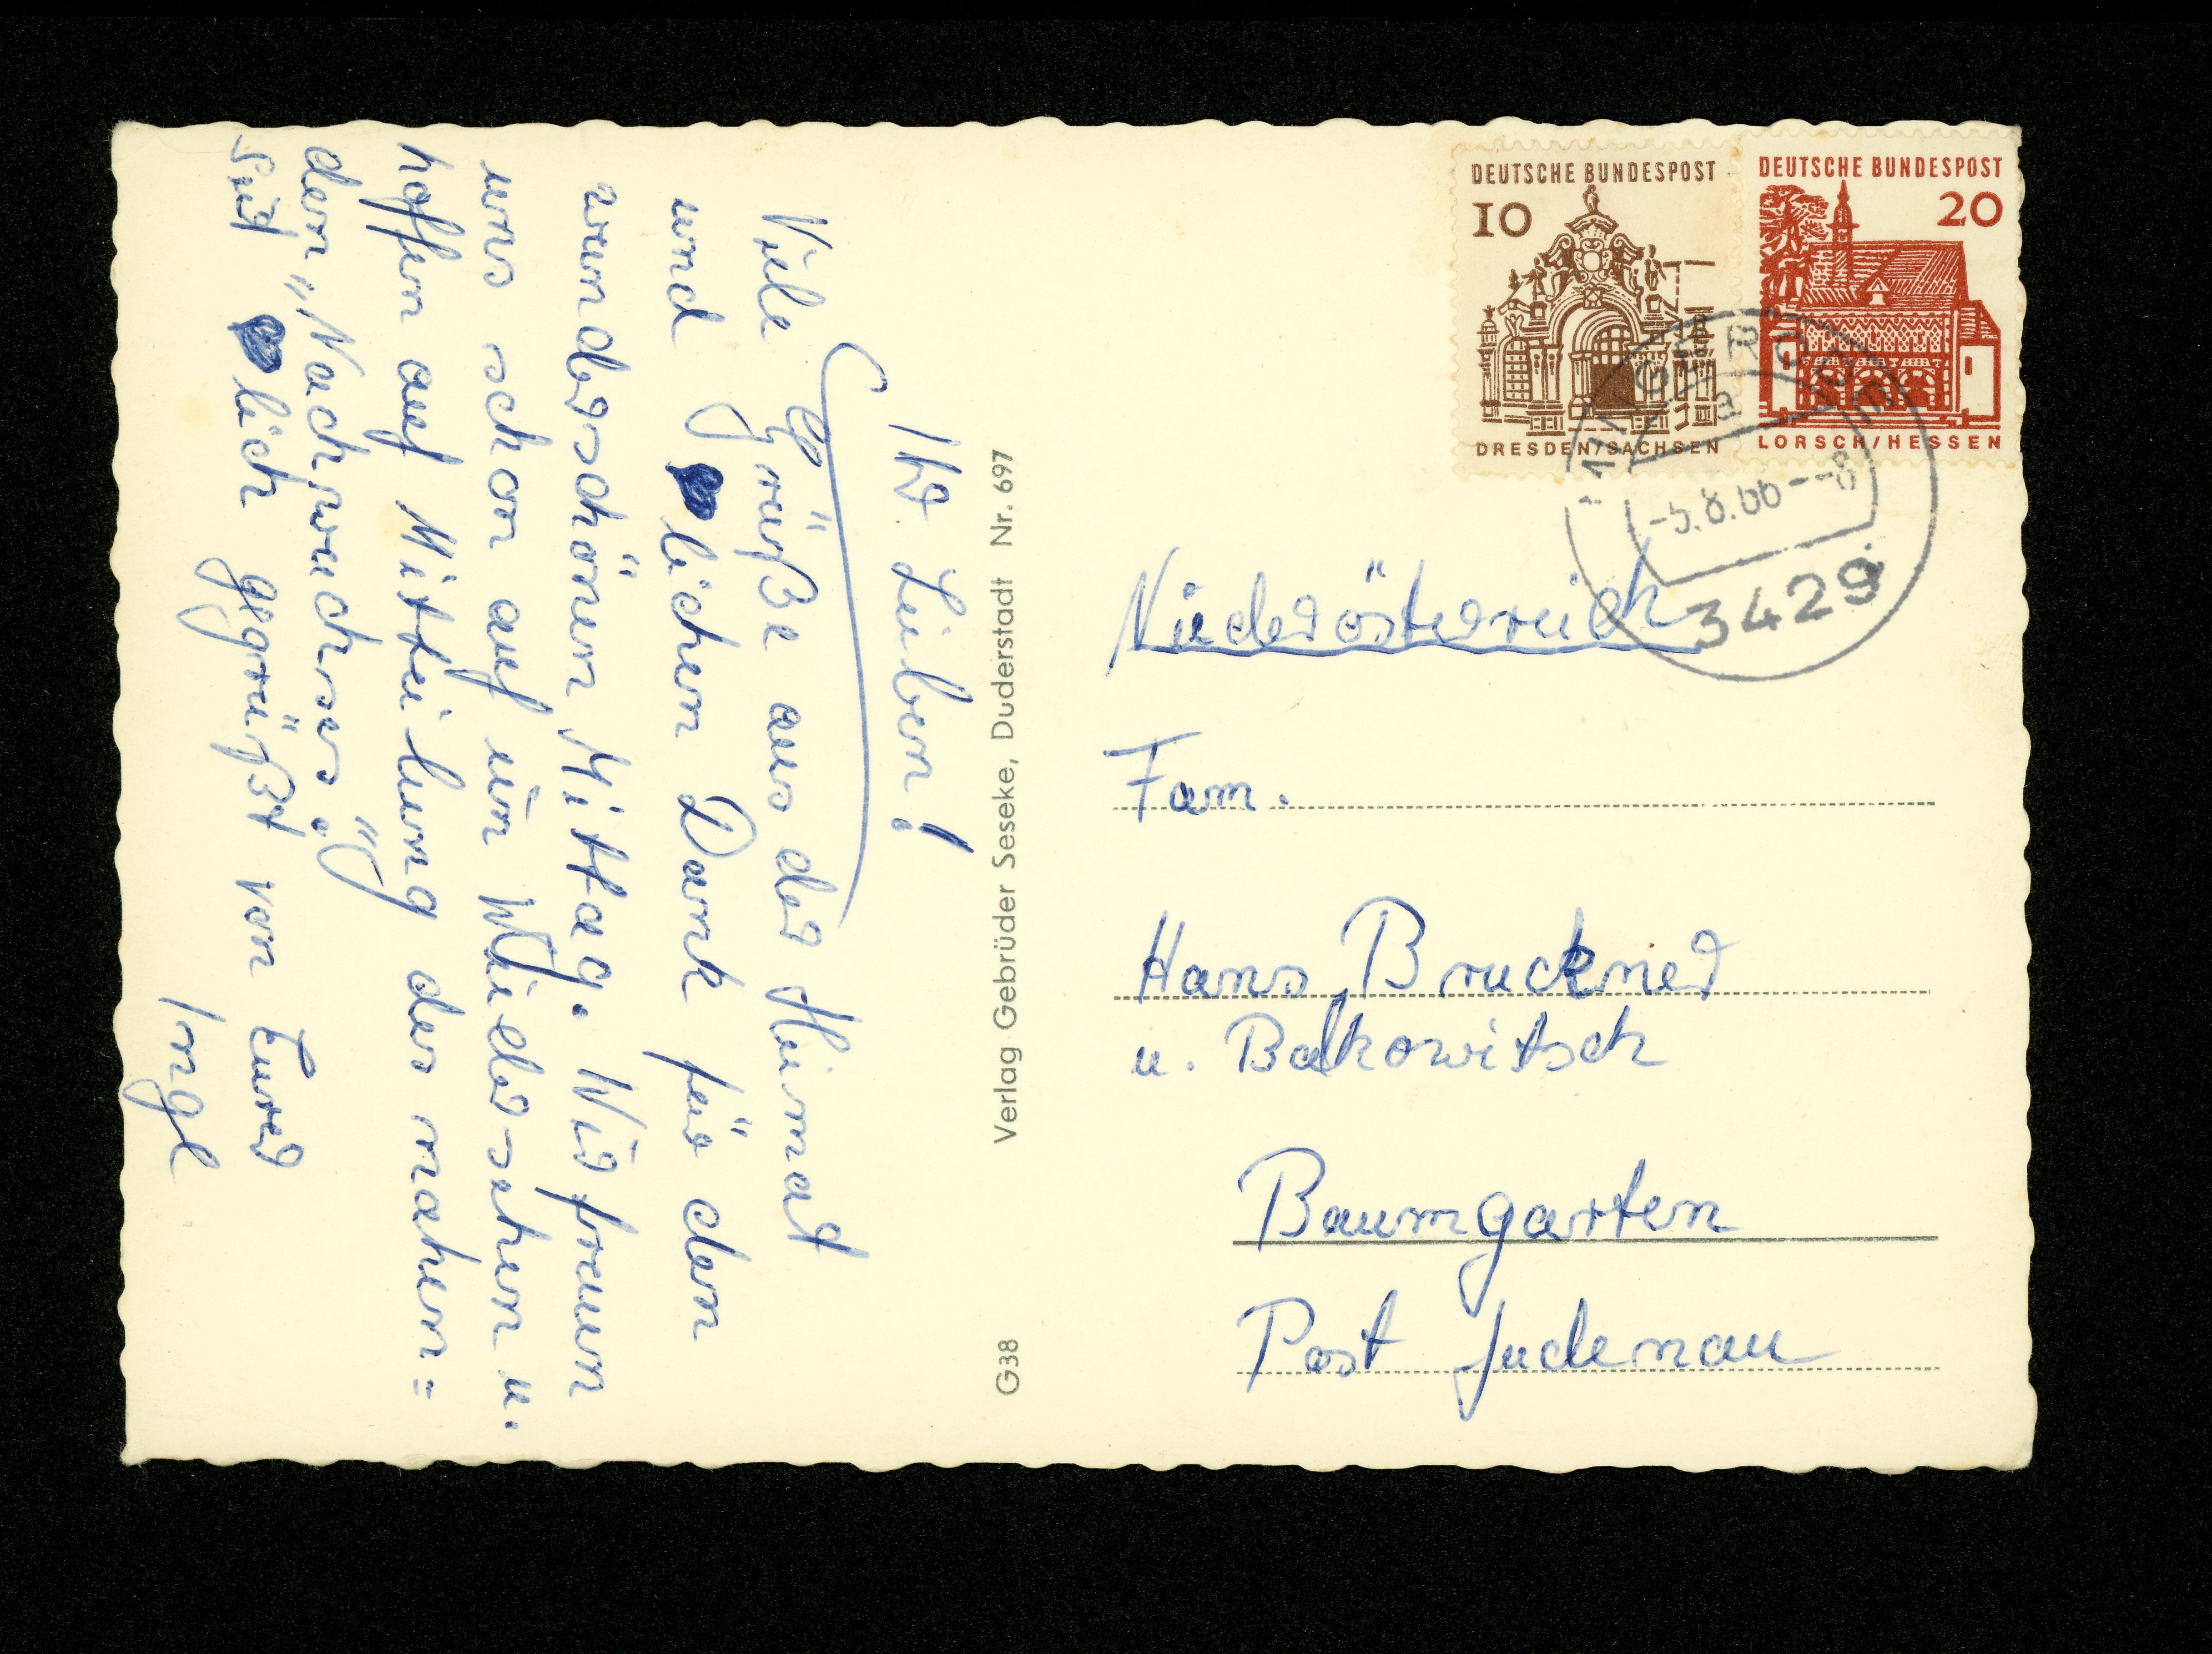 DEUTSCHE BUNDESPOST
10
DRESDEN/SACHSEN
DEUTSCHE BUNDESPOST
20
LORSCH/HESSEN
-5.8.66--8
3429
Niederösterreich
Fam.
Hans Bruckner
u. Balkowitsch
Baumgarten
Post Judenau
Verlag Gebrüder Seseke, Duderstadt Nr. 697
G38
Ihr Lieben!
Viele Grüße aus der Heimat
und lichen Dank für den
wunderschönen Mittag. Wir freuen
uns schon auf ein Wiedersehen u.
hoffen auf Mitteilung des nahen=
den „Nachwuchses."
Seid lich gegrüßt von Eurer
Inge